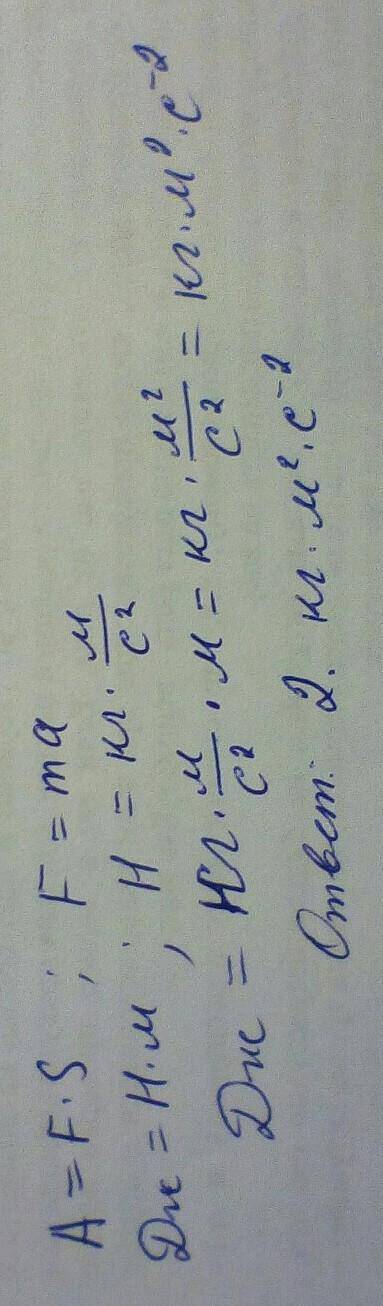 A = F·S ; F = ma
Дж = Н·м ; Н = кг · м/с²
Дж = кг · м/с² · м = кг · м²/с² = кг · м² · с⁻²
Ответ: 2. кг · м² · с⁻²